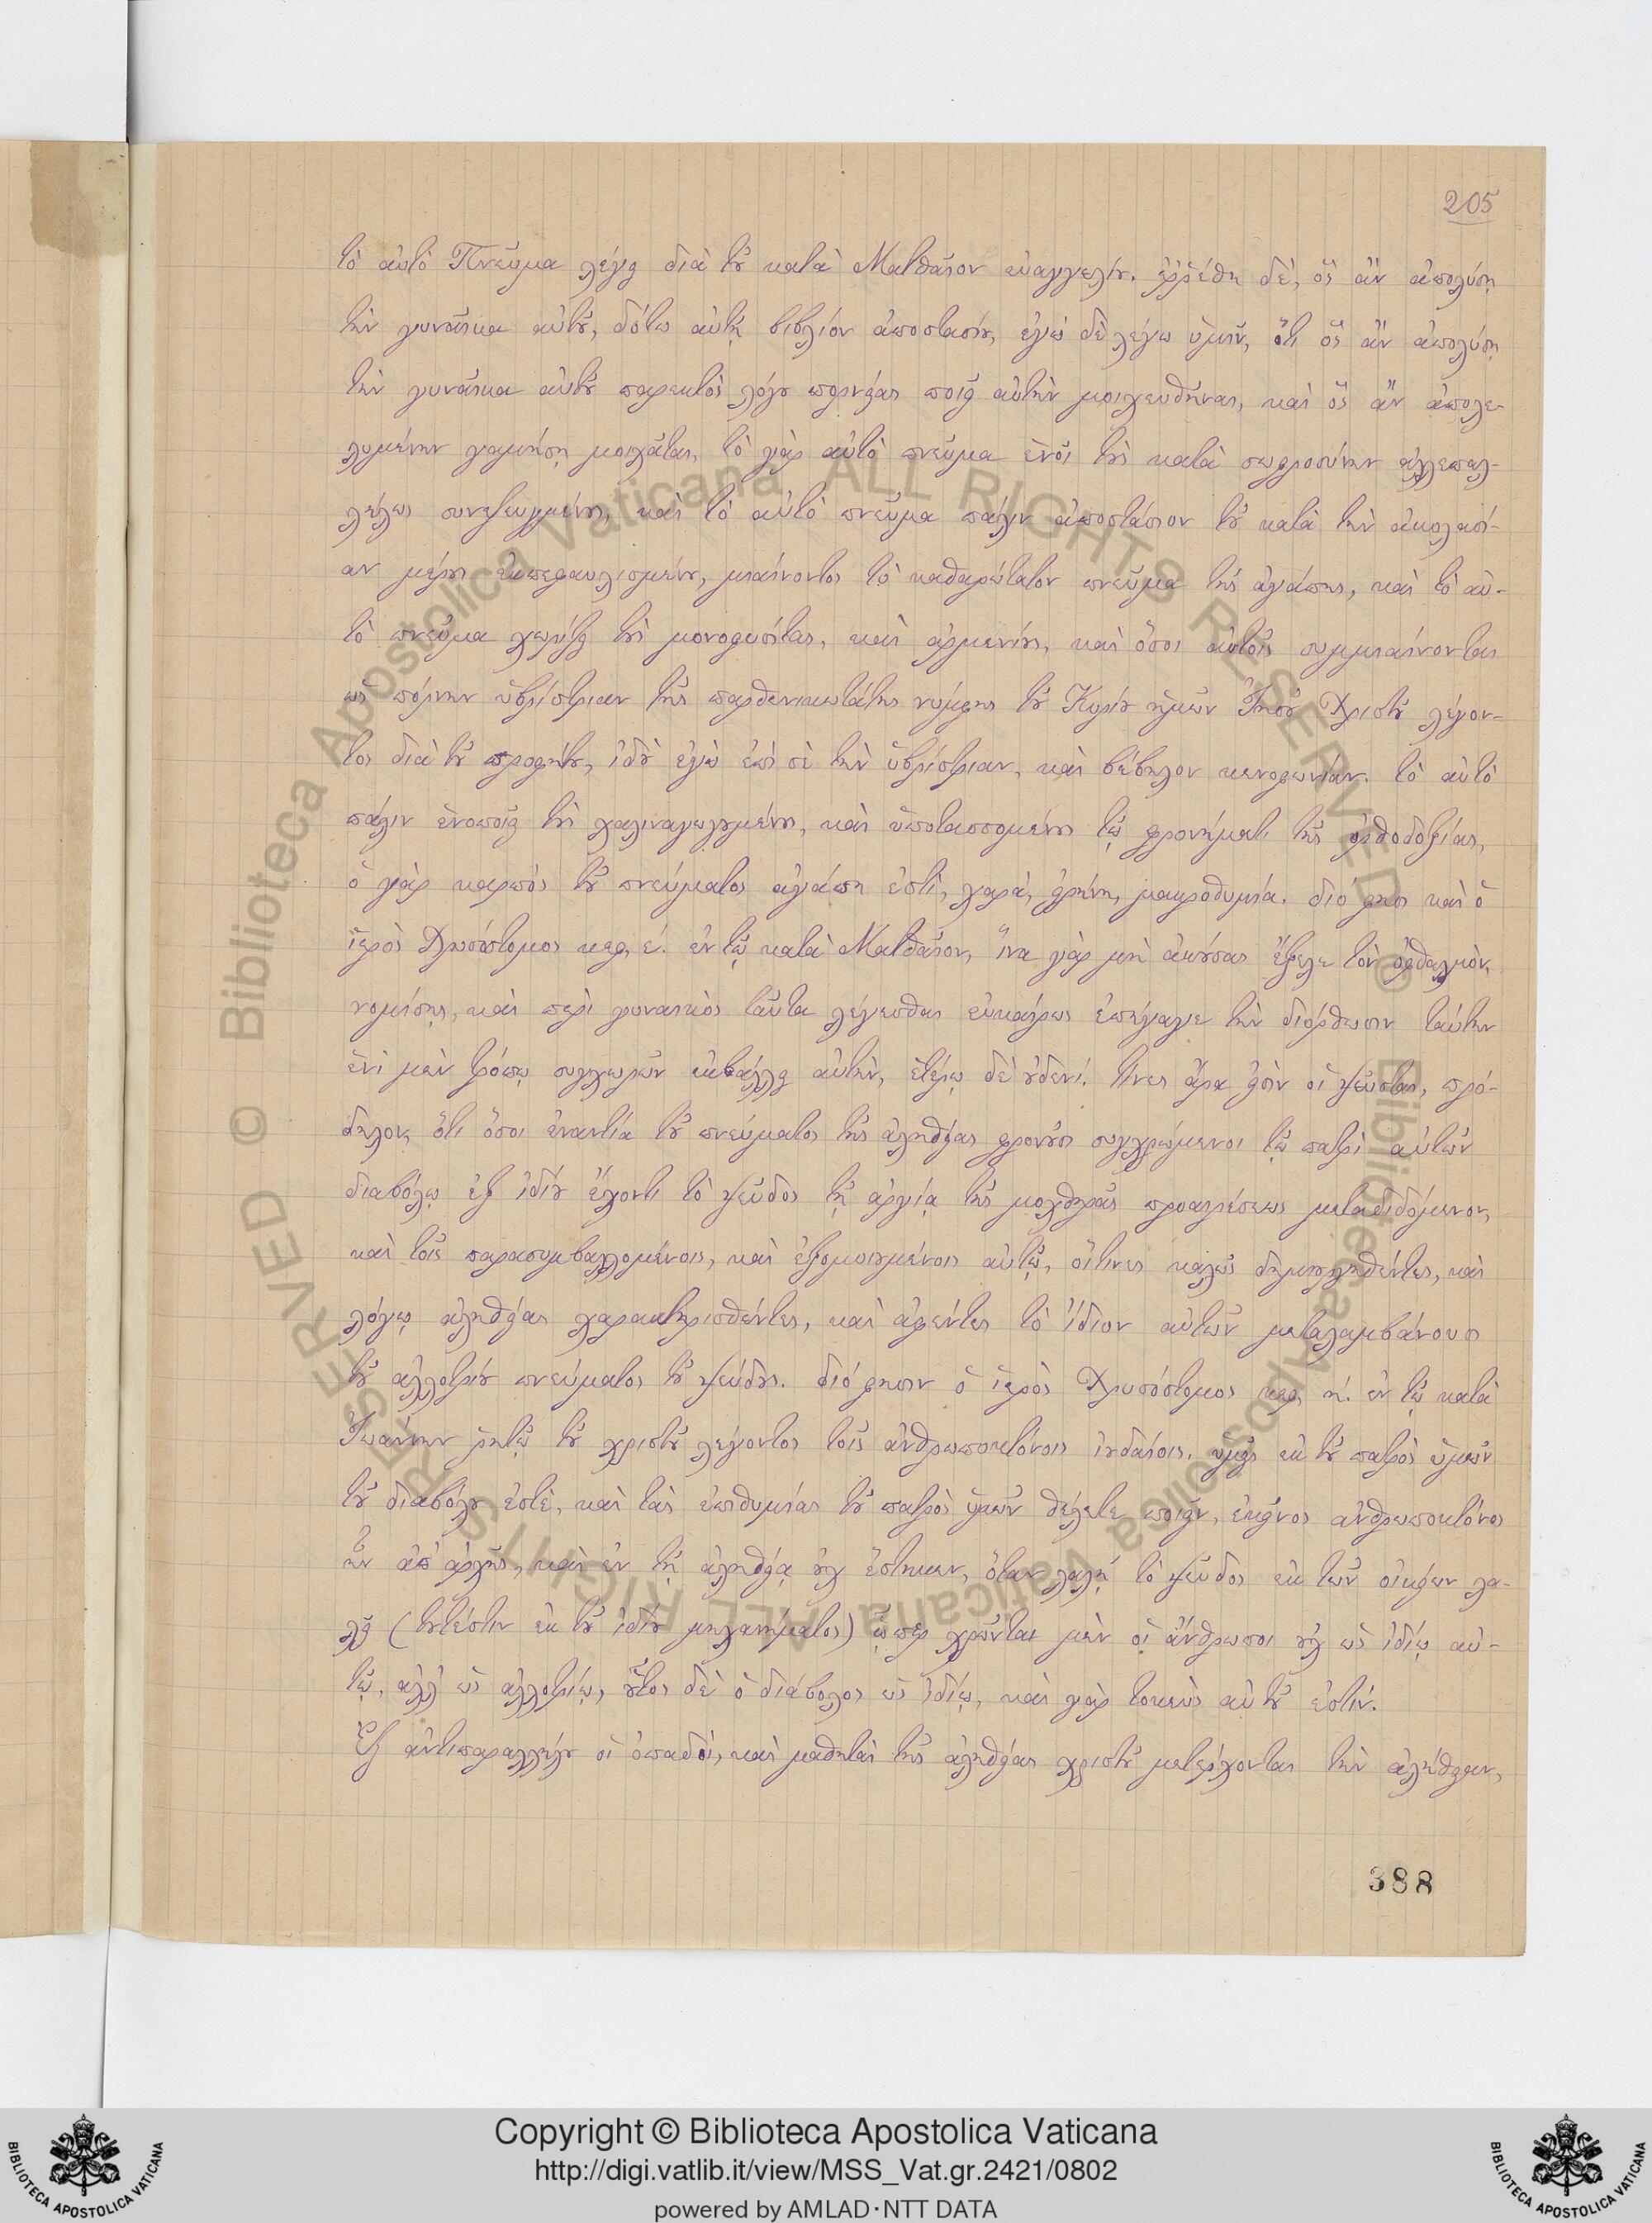 205
τὸ αὐτὸ Πνεῦμα λέγει διὰ τοῦ κατὰ Ματθαῖον εὐαγγελίου. ἐῤῥέθη δὲ, ὃς ἂν ἀπολύσῃ
τὴν γυναῖκα αὐτοῦ, δότω αὐτῇ βιβλίον ἀποστασίου, ἐγὼ δὲ λέγω ὑμῖν, ὅτι ὃς ἂν ἀπολύσῃ
τὴν γυναῖκα αὐτοῦ παρεκτὸς λόγου πορνείας ποιεῖ αὐτὴν μοιχευθῆναι, καὶ ὃς ἂν ἀπολε-
λυμένην γαμήσῃ μοιχᾶται, τὸ γὰρ αὐτὸ πνεῦμα ἑνοῖ τοὺς κατὰ σωφροσύνην ἀλλεπαλ-
λήλως συνεζευγμένους, καὶ τὸ αὐτὸ πνεῦμα πάλιν ἀποστάσιον τοῦ κατὰ τὴν ἀκολασί-
αν μέρους ἐκπεφαυλισμένου, μιαίνοντος τὸ καθαρώτατον πνεῦμα τῆς ἀγάπης, καὶ τὸ αὐ-
τὸ πνεῦμα χωρίζει τοὺς μονοφυσίτας, καὶ ἀρμενίους, καὶ ὅσοι αὐτοῖς συμμιαίνονται
ὡς πόρνην ὑβρίστριαν τῆς παρθενικωτάτης νύμφης τοῦ Κυρίου ἡμῶν Ἰησοῦ Χριστοῦ λέγον-
τος διὰ τοῦ προφήτου, ἰδοὺ ἐγὼ ἐπὶ σὲ τὴν ὑβρίστριαν, καὶ βέβηλον κενοφωνίαν. τὸ αὐτὸ
πάλιν ἑνοποιεῖ τοὺς χαλιναγωγουμένους, καὶ ὑποτασσομένους τῷ φρονήματι τῆς ὀρθοδοξίας,
ὁ γὰρ καρπὸς τοῦ πνεύματος ἀγάπη ἐστὶ, χαρά, εἰρήνη, μακροθυμία. διό φησι καὶ ὁ
ἱερὸς Χρυσόστομος κεφ. ε΄. ἐν τῷ κατὰ Ματθαῖον, ἵνα γὰρ μὴ ἀκούσας ἔξελε τὸν ὀφθαλμὸν,
νομίσῃς, καὶ περὶ γυναικὸς ταῦτα λέγεσθαι εὐκαίρως ἐπήγαγε τὴν διόρθωσιν ταύτην
ἑνὶ μὲν τρόπῳ συγχωρῶν ἐκβάλλειν αὐτὴν, ἑτέρῳ δὲ οὐδενί. τίνες ἄρα εἰσὶν οἱ ψεῦσται, πρό-
δηλον, ὅτι ὅσοι ἐναντία τοῦ πνεύματος τῆς ἀληθείας φρονοῦσι συγχρώμενοι τῷ πατρὶ αὐτῶν
διαβόλῳ ἐξ ἰδίου ἔχοντι τὸ ψεῦδος τῇ ἀργίᾳ τῆς μοχθηρᾶς προαιρέσεως μεταδιδόμενον,
καὶ τοῖς παρασυμβαλλομένοις, καὶ ἐξομοιουμένοις αὐτῷ, οἵτινες καλῶς δημιουργηθέντες, καὶ
λόγῳ ἀληθείας χαρακτηρισθέντες, καὶ ἀφέντες τὸ ἴδιον αὐτῶν μεταλαμβάνουσι
τοῦ ἀλλοτρίου πνεύματος τοῦ ψεύδους. διό φησιν ὁ ἱερὸς Χρυσόστομος κεφ. η΄. ἐν τῷ κατὰ
Ἰωάννην ῥητῷ τοῦ χριστοῦ λέγοντος τοῖς ἀνθρωποκτόνοις ἰουδαίοις. ὑμεῖς ἐκ τοῦ πατρὸς ὑμῶν
τοῦ διαβόλου ἐστὲ, καὶ τὰς ἐπιθυμίας τοῦ πατρὸς ὑμῶν θέλετε ποιεῖν, ἐκεῖνος ἀνθρωποκτόνος
ἦν ἀπ᾽ ἀρχῆς, καὶ ἐν τῇ ἀληθείᾳ οὐχ ἕστηκεν, ὅταν λαλῇ τὸ ψεῦδος ἐκ τῶν οἰκείων λα-
λεῖ (τουτέστιν ἐκ τοῦ ἰδίου μηχανήματος) ᾧπερ χρῶνται μὲν οἱ ἄνθρωποι οὐχ ὡς ἰδίῳ αὐ-
τῷ, ἀλλ᾽ ὡς ἀλλοτρίῳ, οὗτος δὲ ὁ διάβολος ὡς ἰδίῳ, καὶ γὰρ τοκεὺς αὐτοῦ ἐστίν.
Ἐξ ἀντιπαραλλήλου οἱ ὀπαδοὶ, καὶ μαθηταὶ τῆς ἀληθείας χριστοῦ μετέρχονται τὴν ἀλήθειαν,
388
© Biblioteca Apostolica Vaticana ALL RIGHTS RESERVED © Biblioteca Apostolica Vaticana ALL RIGHTS RESERVED
Copyright © Biblioteca Apostolica Vaticana
http://digi.vatlib.it/view/MSS_Vat.gr.2421/0802
powered by AMLAD·NTT DATA
BIBLIOTECA APOSTOLICA VATICANA
BIBLIOTECA APOSTOLICA VATICANA